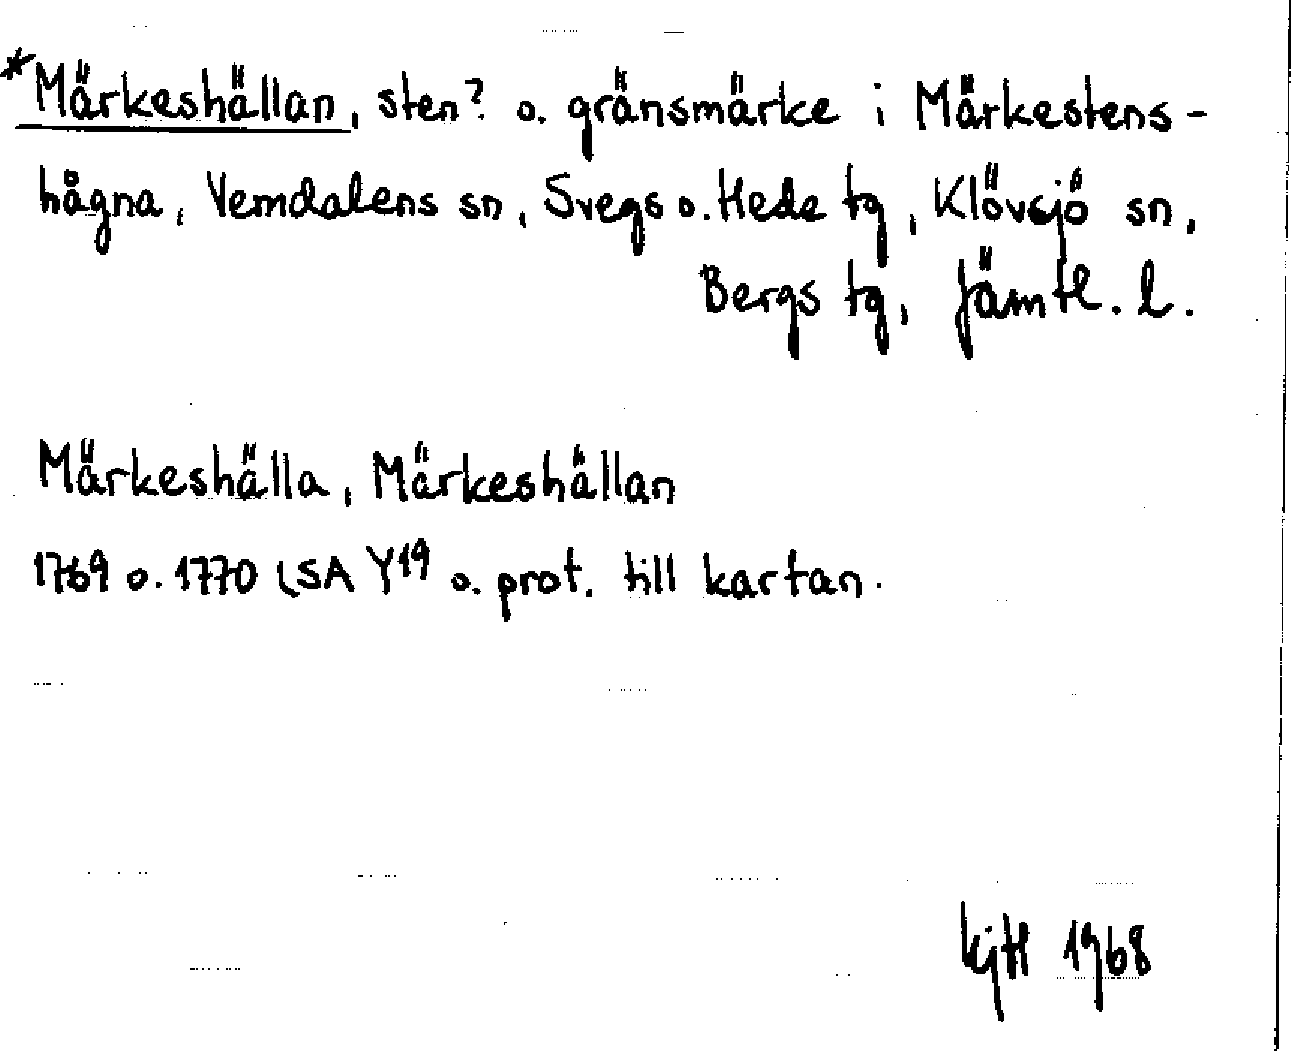 *Märkeshällan, sten? o. gränsmärke i Märkestens-
hågna, Vemdalens sn, Svegs o. Hede tg, Klövsjö sn,
Bergs tg, Jämtl. l.
Märkeshälla, Märkeshällan
1769 o. 1770 LSA Y19 o. prot. till kartan.
KjH 1968